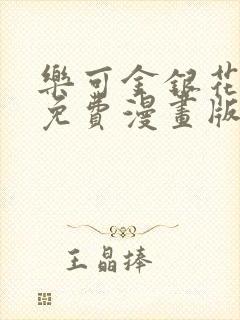 樂可金銀花
免費漫畫版
王晶捧